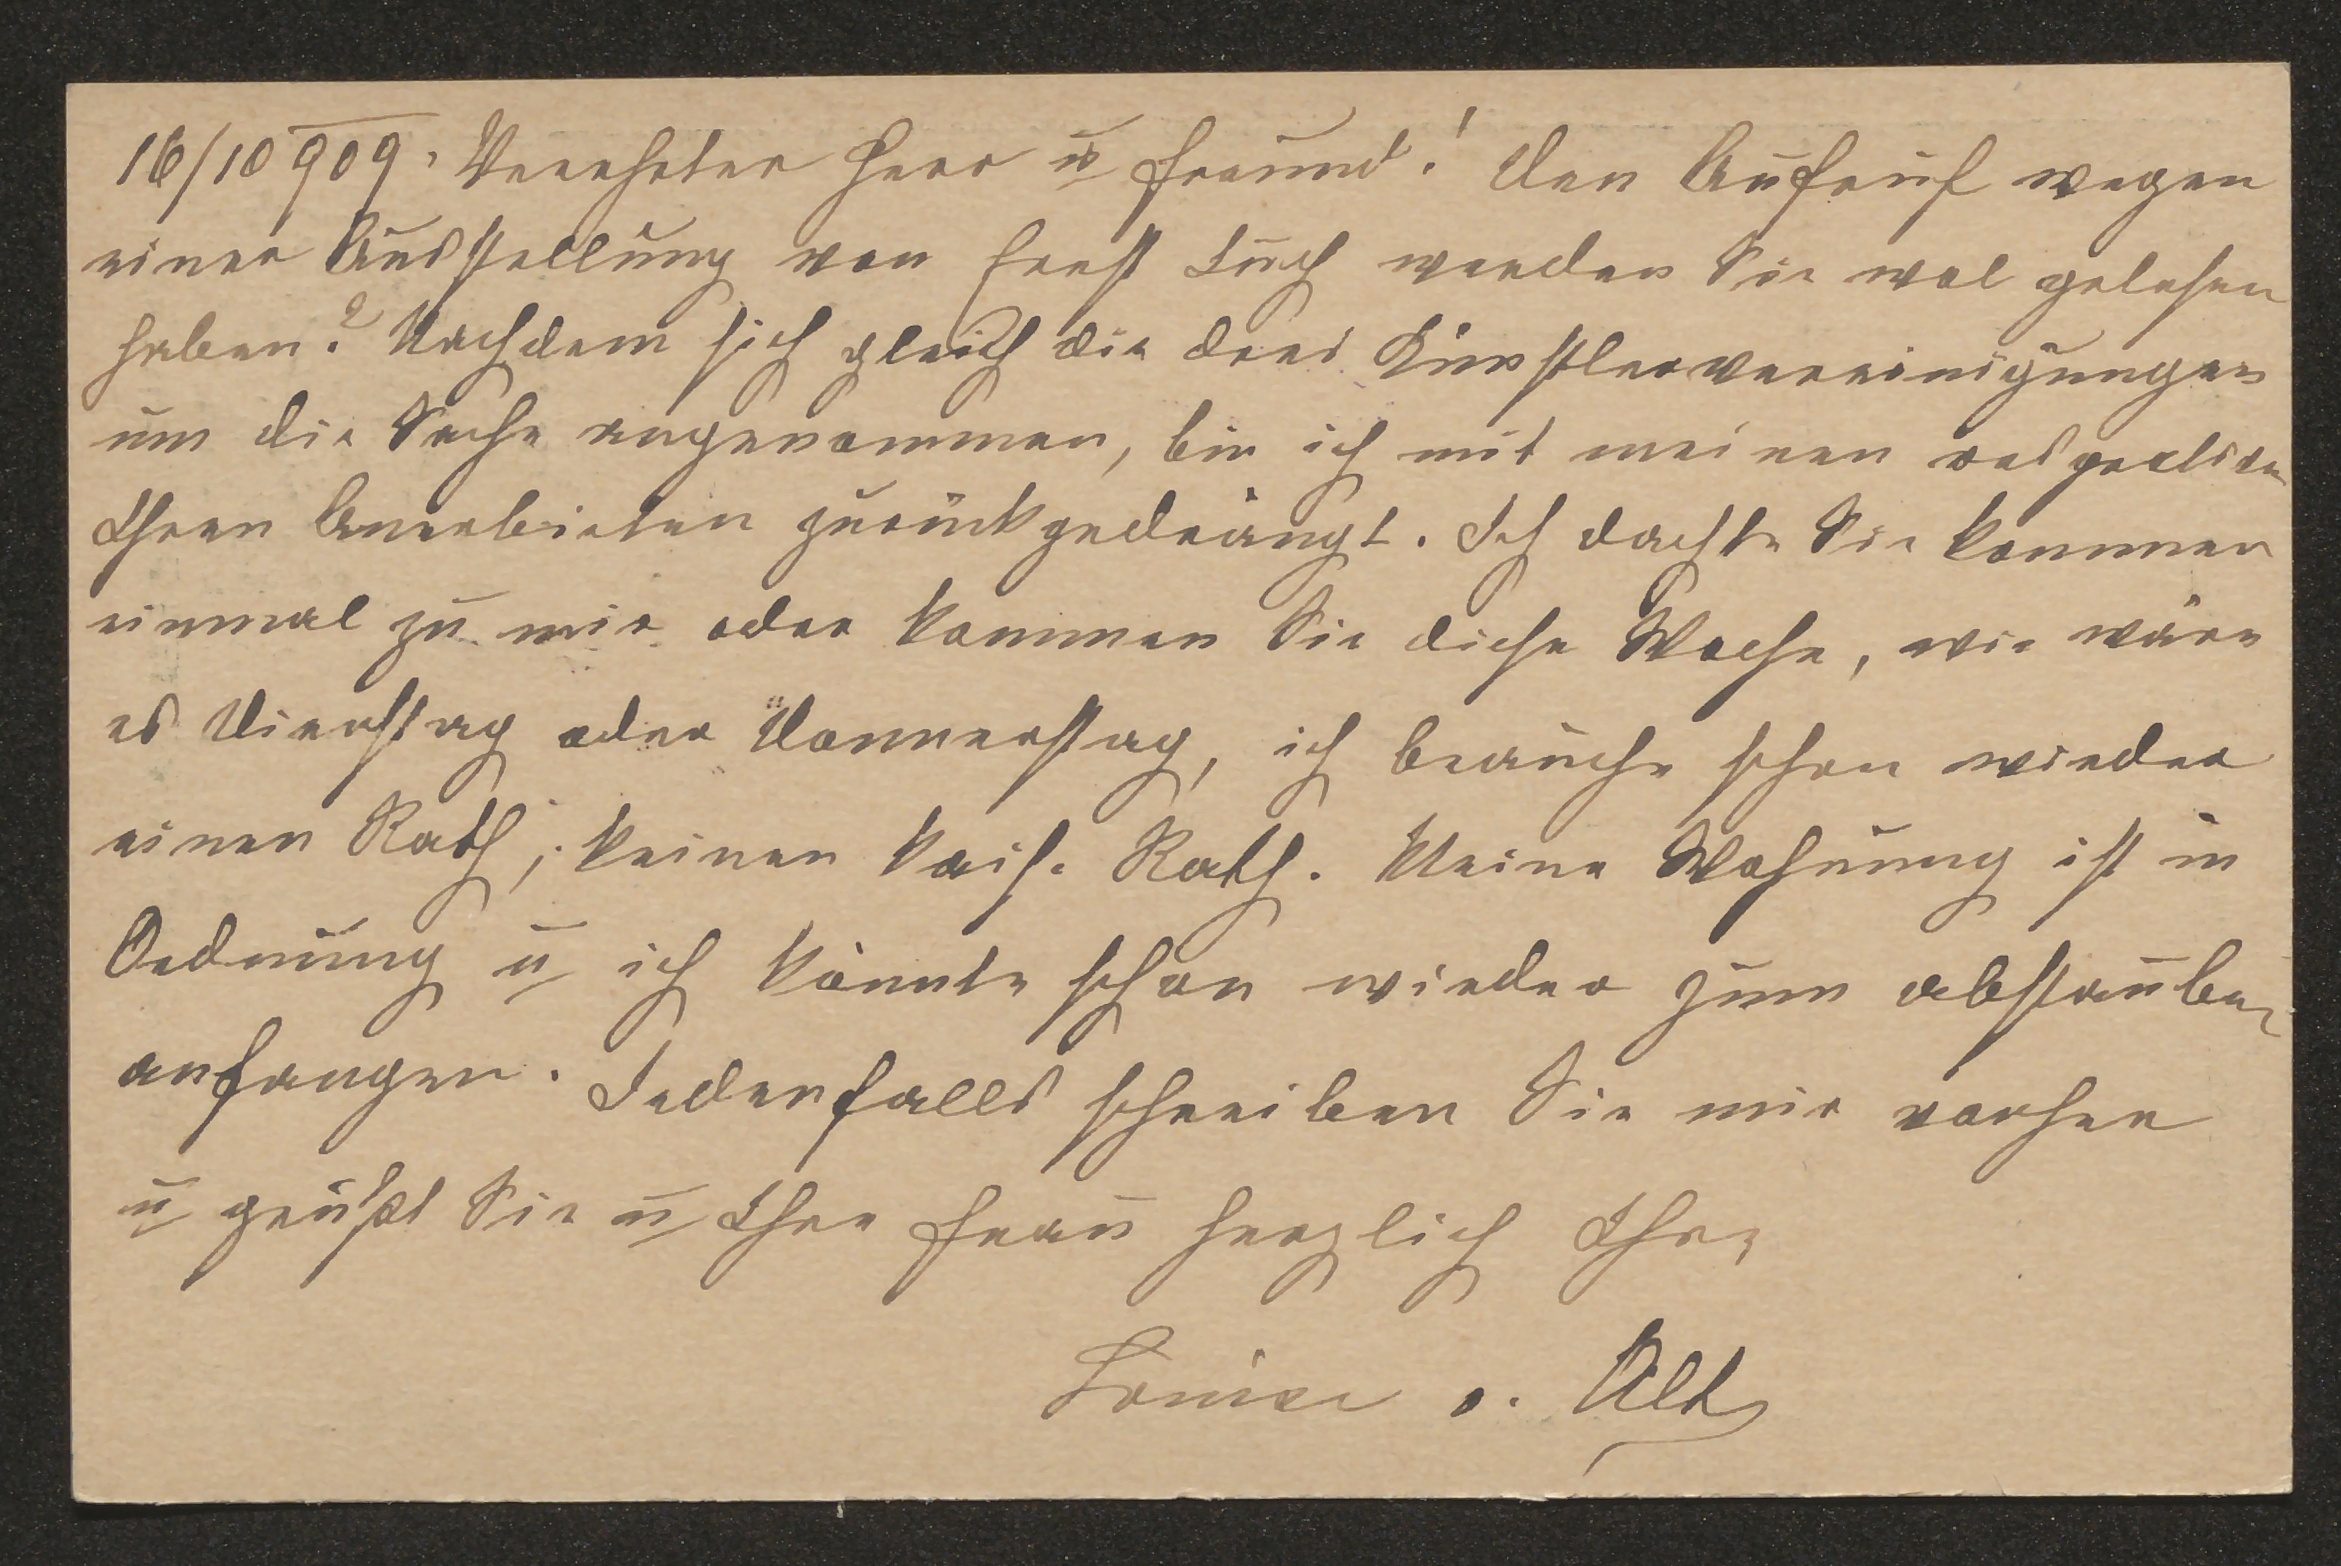 16/10 909. Verehrter Herr u Freund! Den Aufruf wegen
einer Ausstellung von Ernst Juch werden Sie wol gelesen
haben? Nachdem sich gleich die drei Künstlervereinigungen
um die Sache angenommen, bin ich mit meinen respective
Ihren Anerbieten zurückgedrängt. Ich dachte Sie kommen
einmal zu mir oder kommen Sie diese Woche, wie wäre
es Dienstag oder Donnerstag, ich brauche schon wieder
einen Rath, keinen kais. Rath. Meine Wohnung ist in
Ordnung u ich könnte schon wieder zum abstauben
anfangen. Jedenfalls schreiben Sie mir vorher
u grüßt Sie u Ihre Frau herzlich Ihre
Louise v. Alt